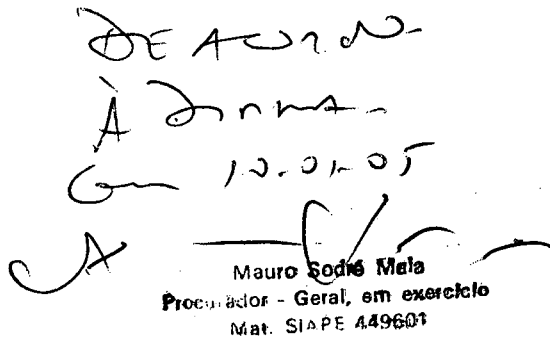 DE ACORDO.
À DIRMA.
Em 10.01.05
Mauro Sodré Maia
Procurador - Geral, em exercício
Mat. SIAPE 449601